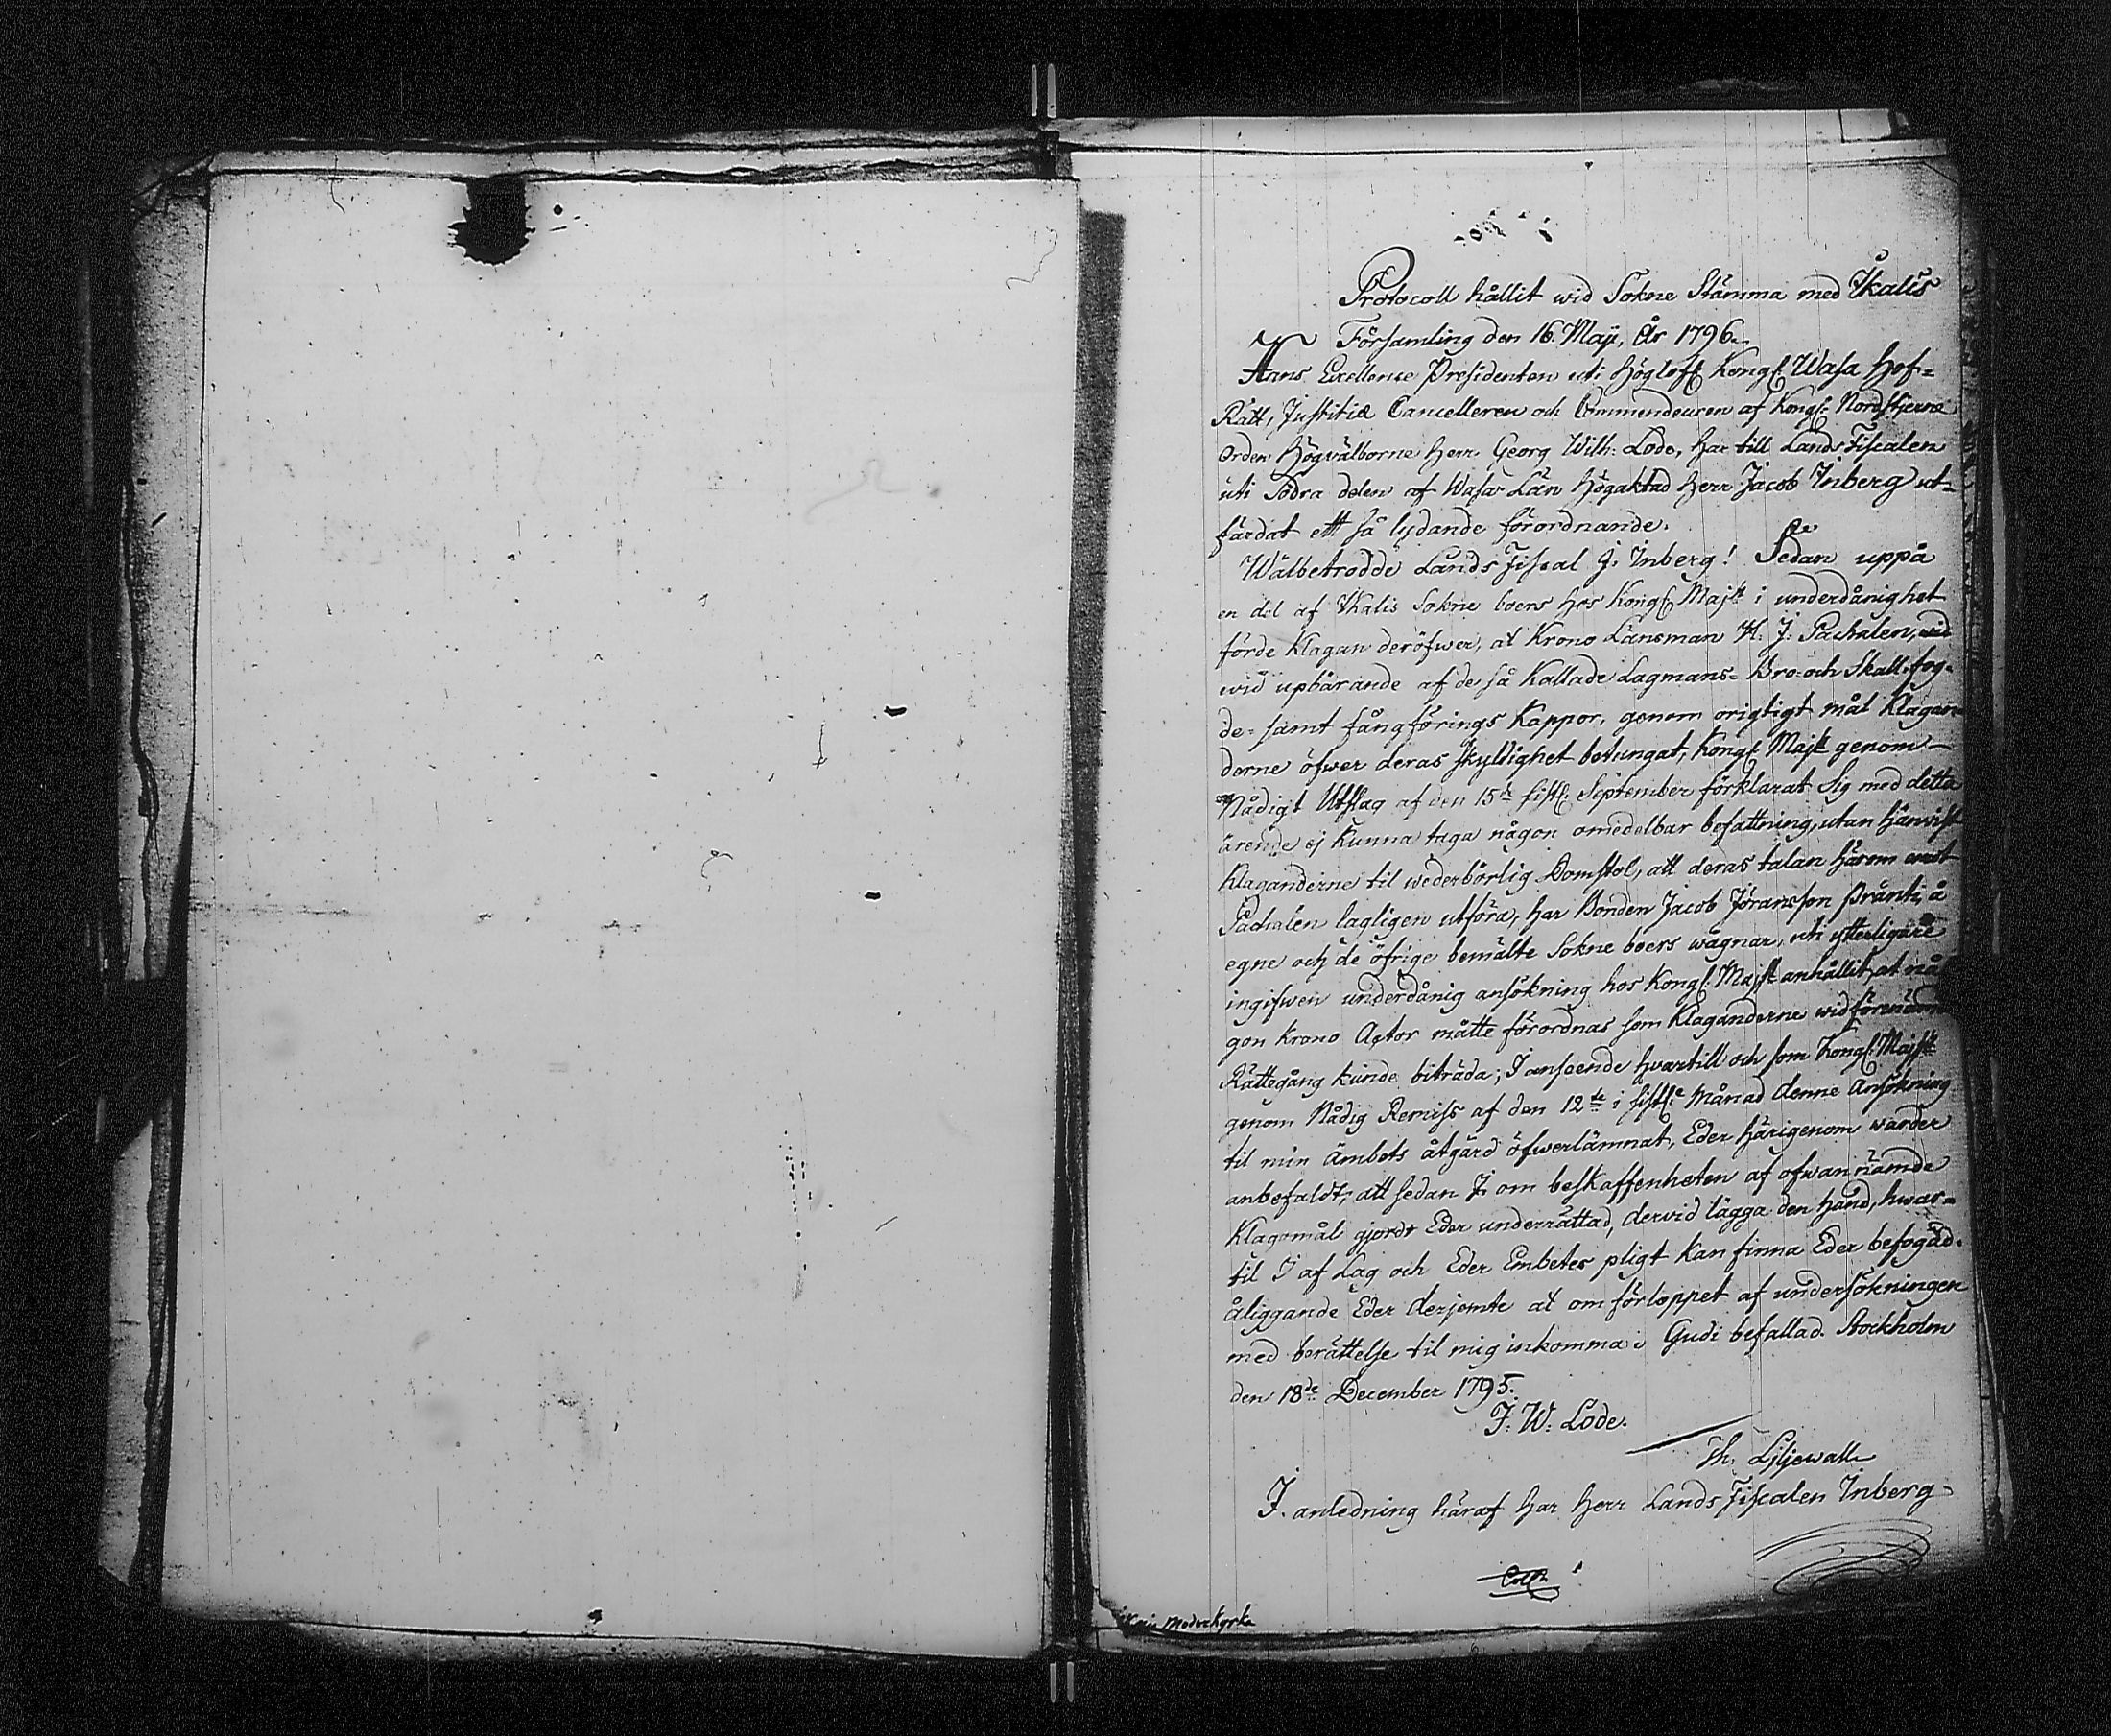 Protocoll hållit wid Sokne Stämma med Ikalis
Församling den 16. Maij, År 1796.
Hans Excellence Presidenten uti Höglofl. Kongl. Wasa Hof-
Rätt, Justitiæ Cancelleren och Commendeuren af Kongl. Nordstjerne
Orden Högvälborne Herr Georg Wilh: Lode, har till Lands Fiscalen
uti Södra delen af Wasa Län Högaktad Herr Jacob Inberg ut-
färdat ett så lydande förordnande.
Wälbetrodde Lands Fiscal J: Inberg! Sedan uppå
en del af Ikalis Sokne boers hos Kongl. Majst i underdånighet
förde Klagan deröfwer, at Krono Länsman H: J: Pachalen, wid
wid upbärande af de så Kallade Lagmans- Bro- och Skall-fog-
de- samt fångförings Kappor, genom origtigt mål Klagan-
derne öfwer deras skyldighet betungat, Kongl. Majst genom
Nådigt Utslag af den 15de sistl. September förklarat Sig med detta
ärende ej Kunna taga någon omedelbar befattning, utan hänvist
Klaganderne til wederbörlig Domstol, att deras talan härom emot
Pachalen lagligen utföra, har Bonden Jacob Jöransson Pränti, å
egne och de öfrige bemälte Sokne boers wägnar, uti ytterligare
ingifwen underdånig ansökning hos Kongl. Majst anhållit, at nå-
gon Krono Actor måtte förordnas som Klaganderne wid förenämde
Rättegång kunde biträda; I anseende hvartill och som Kongl. Majst
genom Nådig Remiss af den 12te i sistl.e Månad denne Ansökning
til min Ämbets åtgärd öfwerlämnat, Eder härigenom warder
anbefaldt, att sedan I om beskaffenheten af ofwannämde
Klagomål gjordt Eder underrättad, dervid lägga den hand, hwar-
til I af Lag och Eder Embetes pligt kan finna Eder befogad.
åliggande Eder derjemte at om förloppet af undersökningen
med berättelse til mig inkomma. Gudi befallad. Stockholm
den 18de December 1795.
J: W: Lode.
Th. Liljewalle
I. anledning häraf har Herr Lands Fiscalen Inberg
Moderkyrka